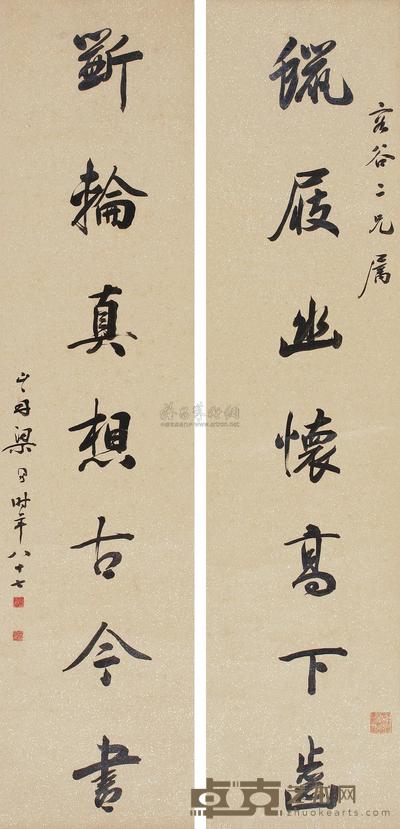 谷二兄屬
蠟屐幽懷高下齒
斲輪真想古今書
山舟梁同書時年八十七
卓克艺术网